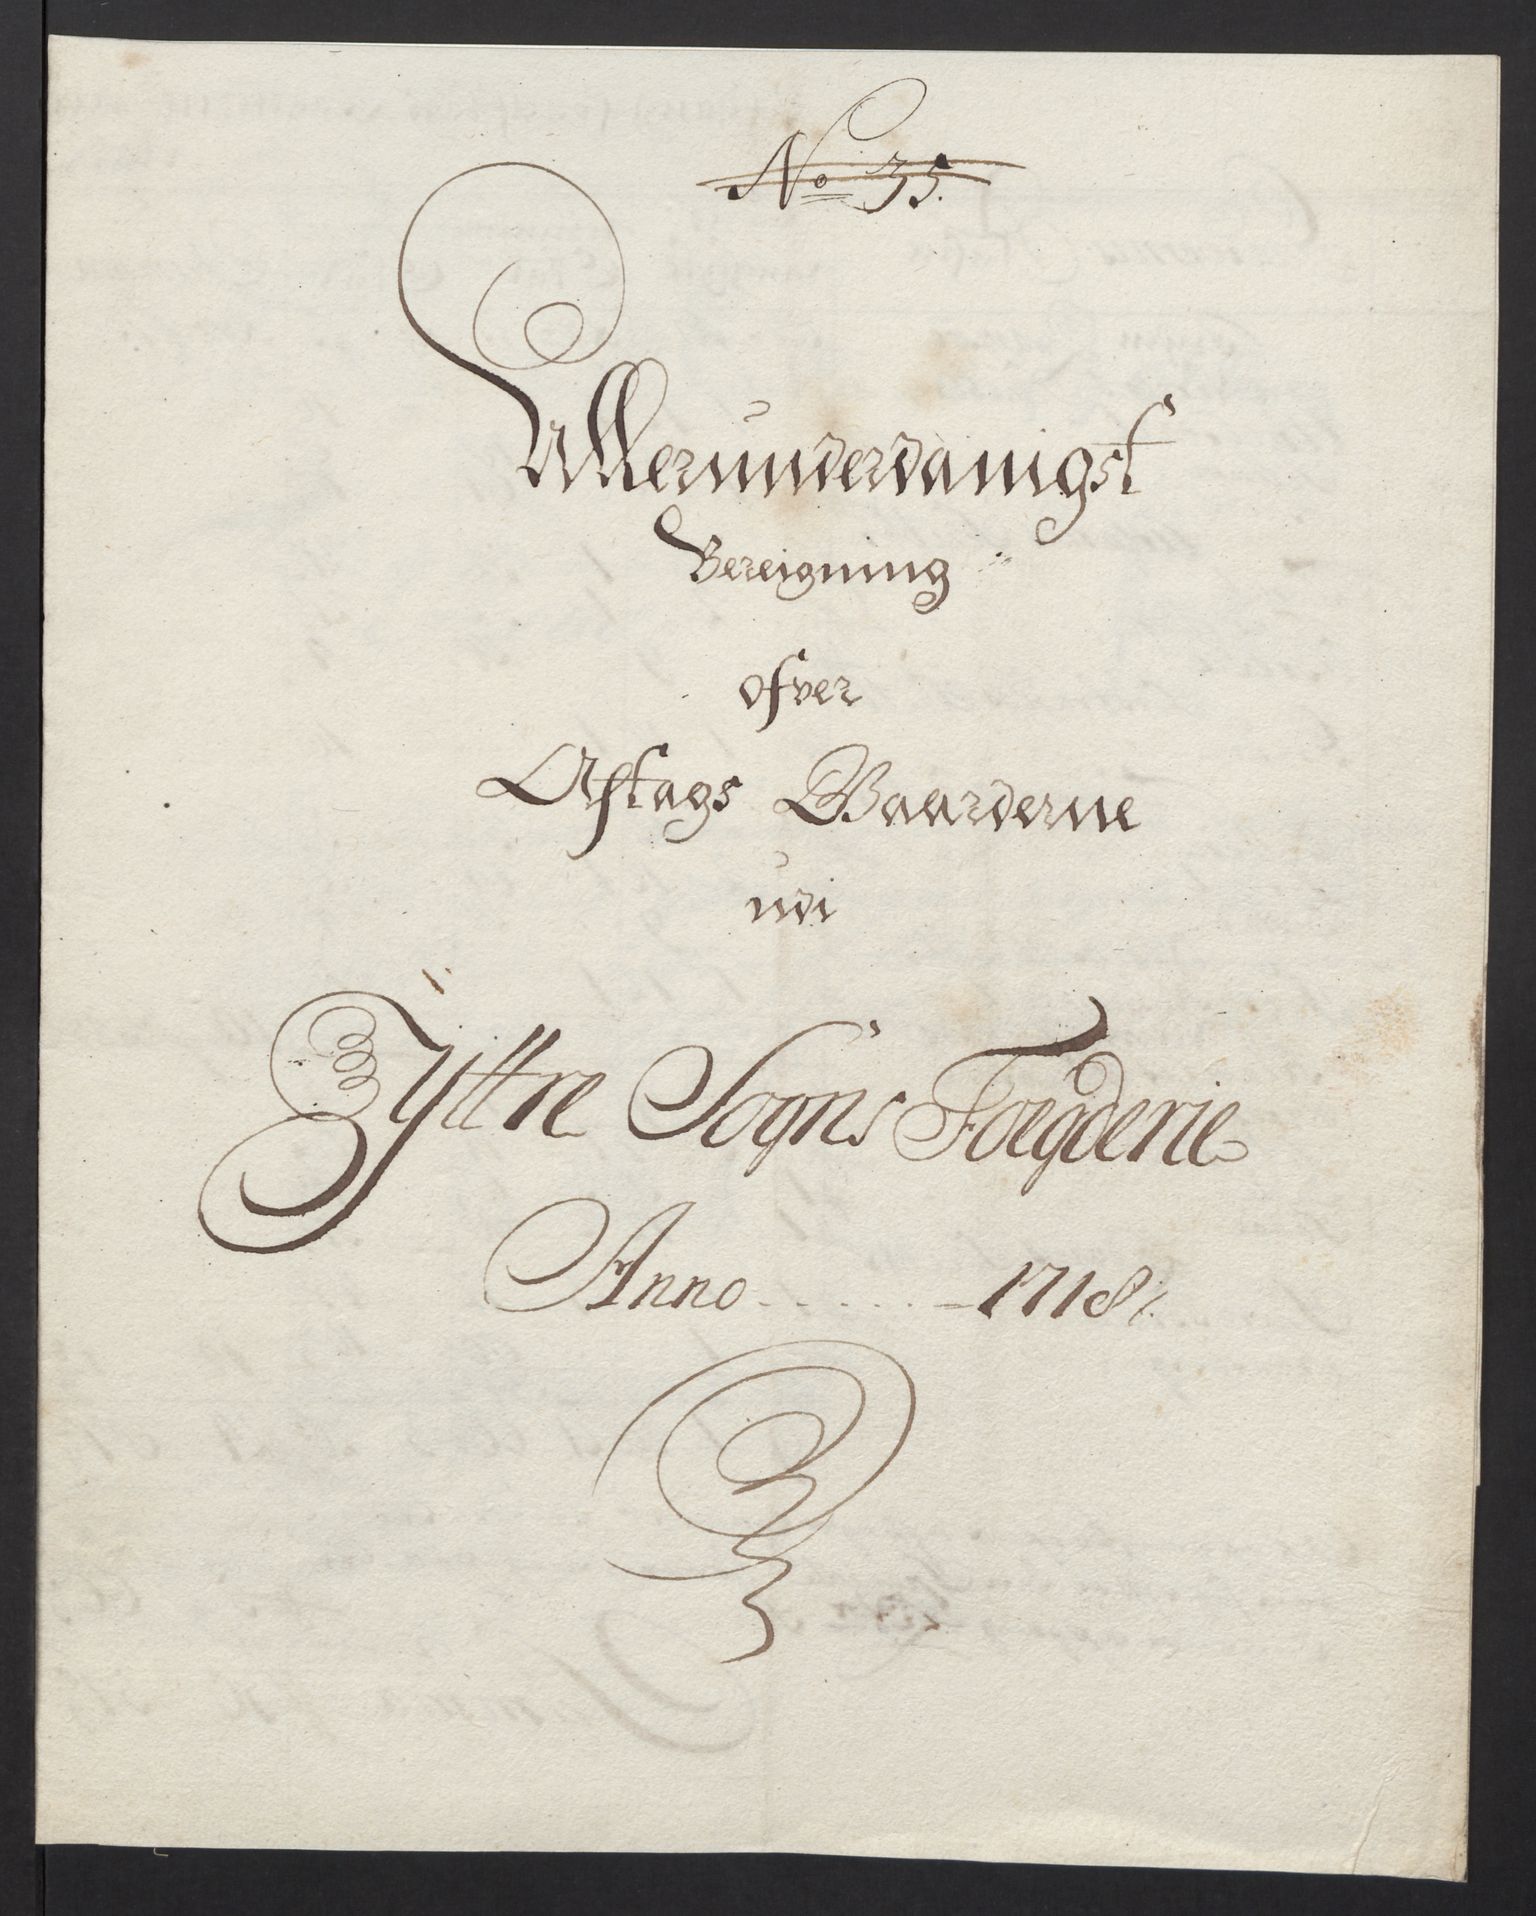 No 35.
Allerunderdanigst
Bereigning
ofver
Aftags Waarderne
udi
Yttre Sogns Foegderie
Anno ...... 1718.